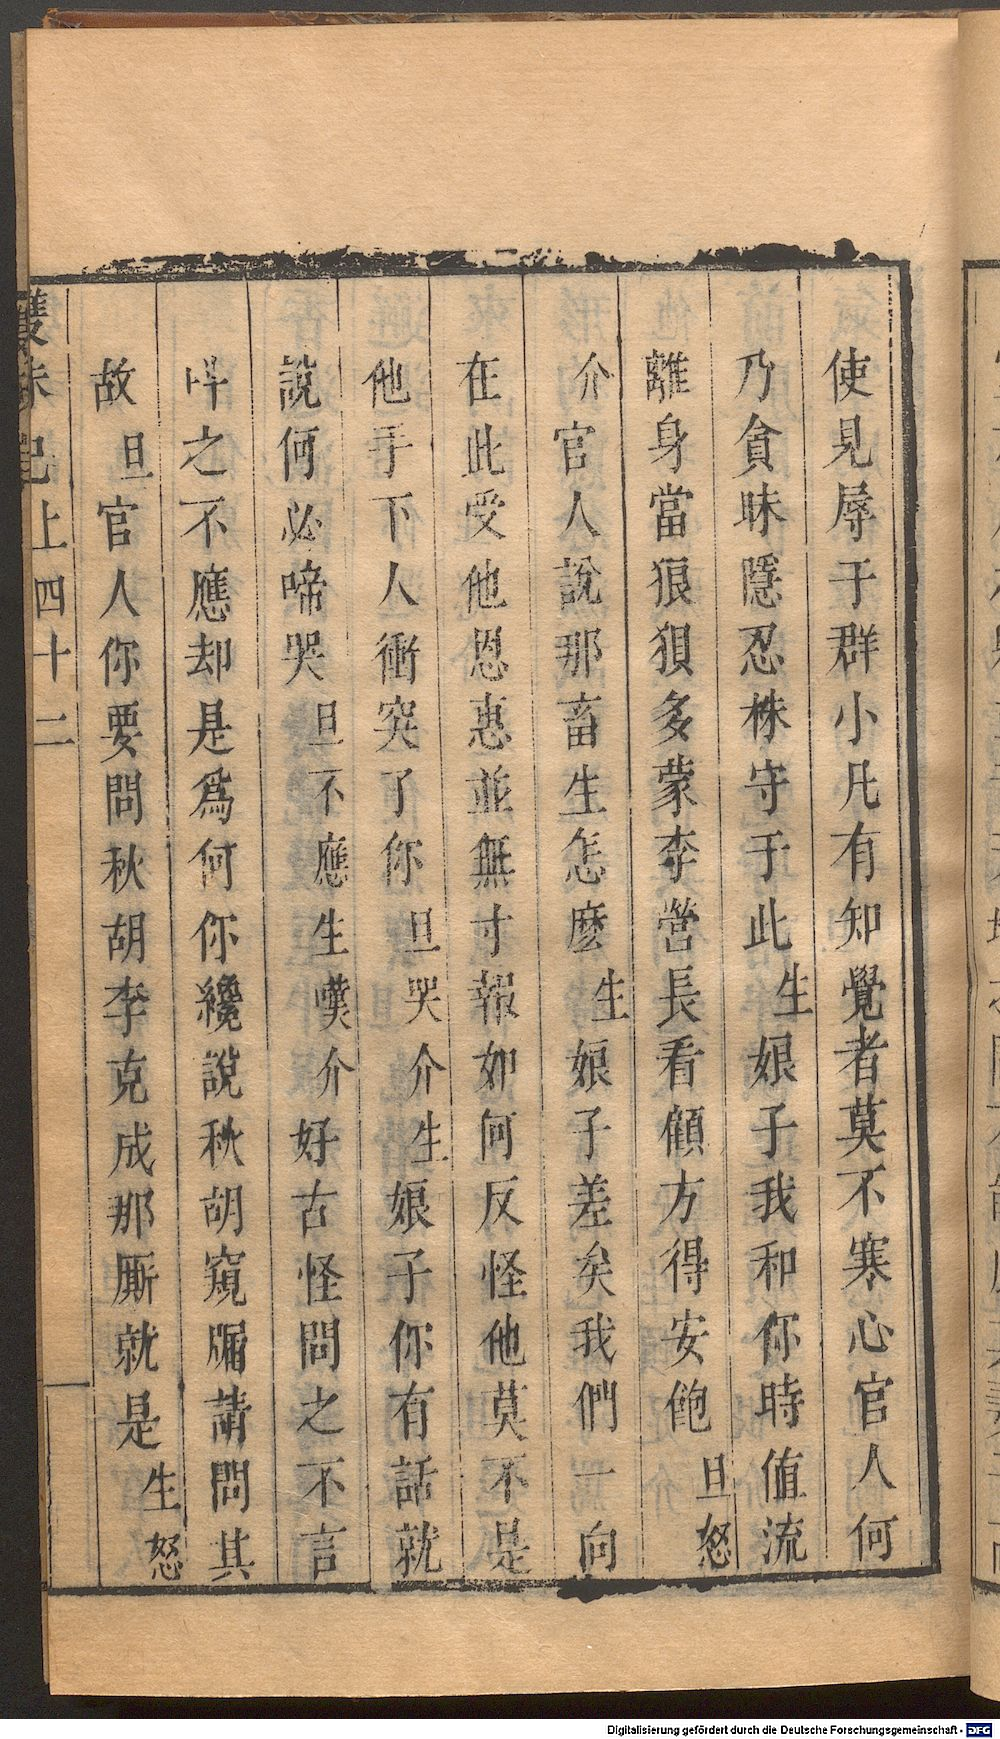 使見辱于群小凡有知覺者莫不寒心官人何
乃貪昧隱忍株守于此生娘子我和你時值流
離身當狼狽多蒙李營長看顧方得安飽旦怒
介官人說那畜生怎麽生娘子差矣我們一向
在此受他恩惠並無寸報如何反怪他莫不是
他手下人衝突了你旦哭介生娘子你有話就
說何必啼哭旦不應生嘆介好古怪問之不言
之不應却是爲何你纔說秋胡窺牖請問其
故旦官人你要問秋胡李克成那厮就是生怒
雙珠記上四十二
Digitalisierung gefördert durch die Deutsche Forschungsgemeinschaft - DFG